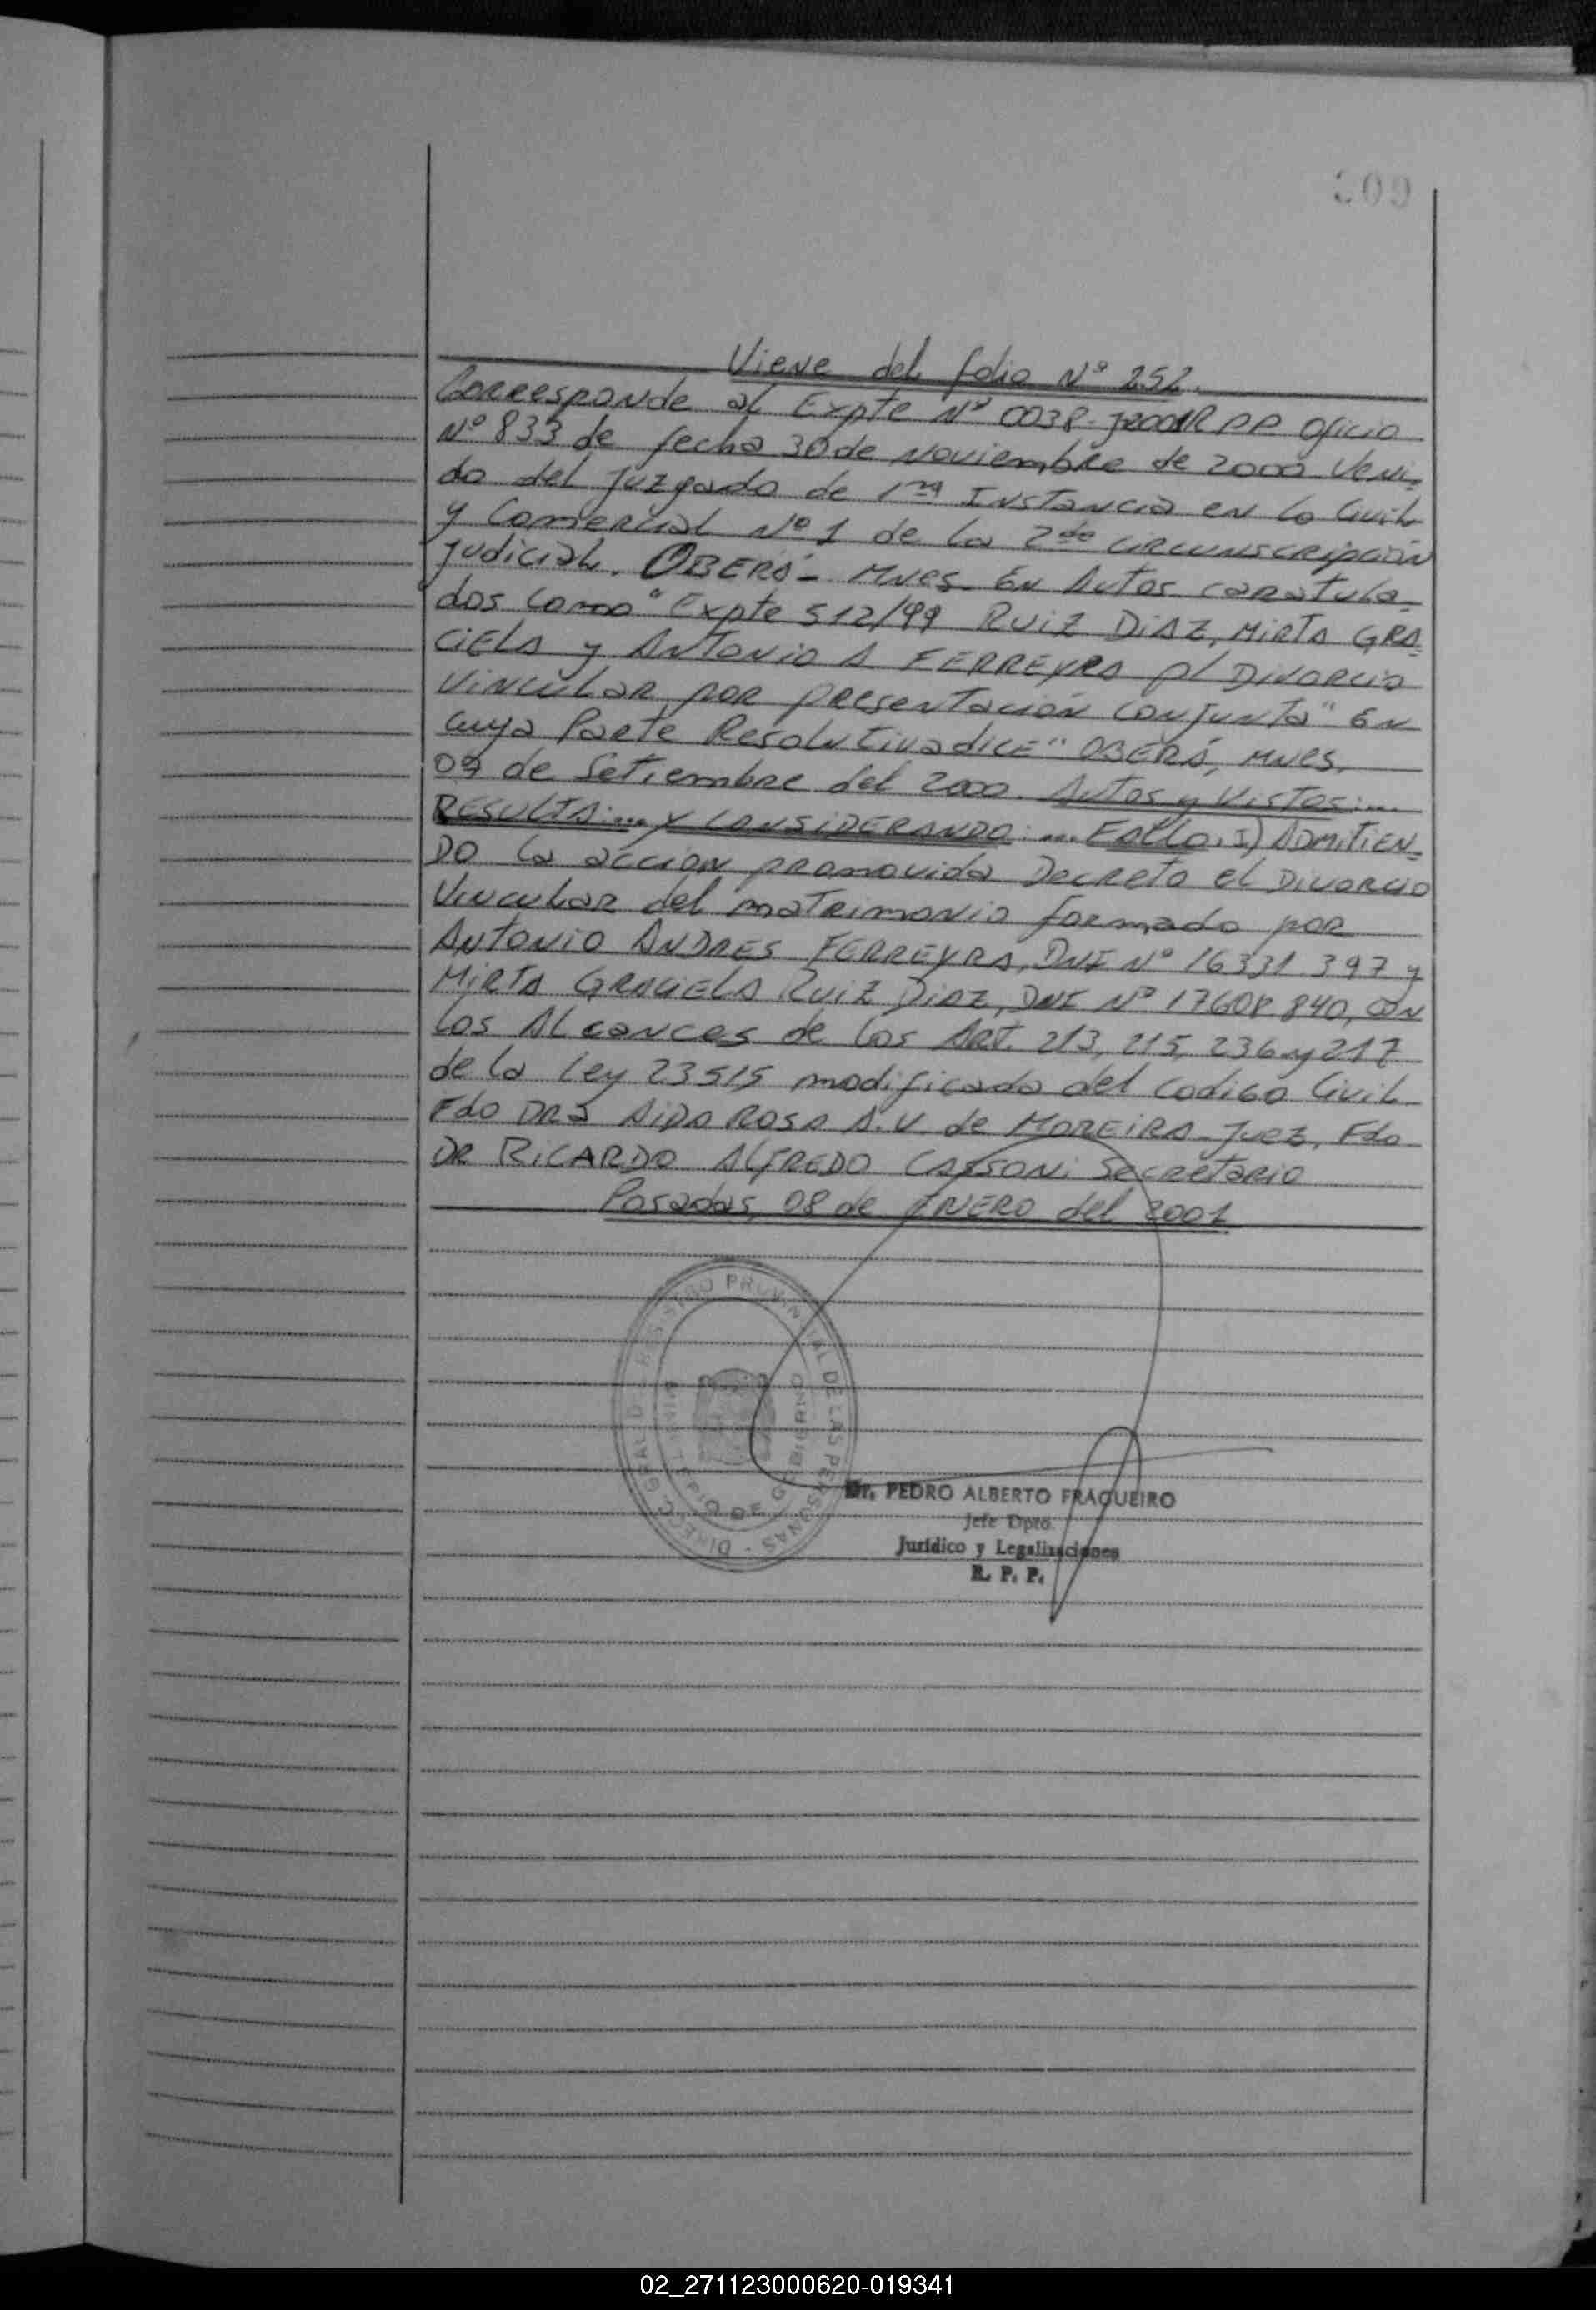 Viene del folio Nº 252.
Corresponde al Expte Nº 0038- RPP Oficio
Nº 833 de fecha 30 de Noviembre de 2000 Veni-
do del Juzgado de 1ra Instancia en lo Civil
y Comercial Nº 1 de la 2da circunscripción
Judicial. OBERÁ- Mnes. En Autos caratula-
dos como "Expte 512/99 Ruiz DiAZ, MirTA GRA-
CiELA y ANTONIO A FERREYRA p/ DiVORCIO
VINCULAR POR presentación conjunta" En
cuya Parte Resolutiva dice "OBERÁ, Mnes,
09 de Setiembre del 2000. Autos y Vistos:...
RESULTA:... Y CONSiDERANDO:... FALLO. I) ADMiTiEN-
DO la acción promovida Decreto el DIVORCIO
Vincular del matrimonio formado por
ANTONIO ANDRES FERREYRA, DNI Nº 16331397 y
MiRTA GRACiELA RUiZ DiAZ, DNI Nº 17608840, CON
los Alcances de los ART. 213, 215, 236 y 217
de la Ley 23515 modificado del codigo Civil
Fdo DRA AiDA ROSA A.V. de MOREiRA- Juez, Fdo
DR RiCARDO ALFREDO CASSONi Secretario
Posadas, 08 de ENERO del 2001
DIRECC. GRAL. D REGISTRO PROVINCIAL DE LAS PERSONAS -
MINISTERIO DE GOBIERNO
Dr. PEDRO ALBERTO FRAQUEIRO
Jefe Dpto.
Jurídico y Legalizaciones
R. P. P.
02_271123000620-019341